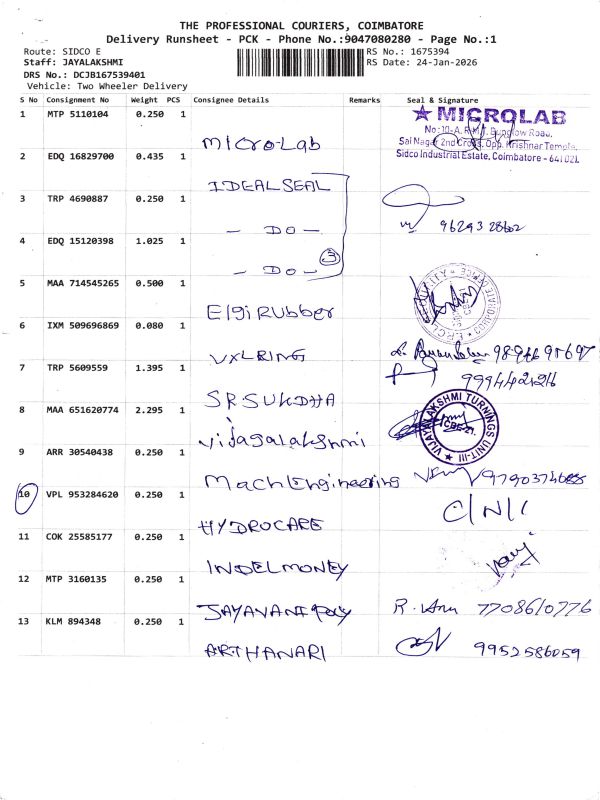 THE PROFESSIONAL COURIERS, COIMBATORE
Delivery Runsheet - PCK - Phone No.:9047080280 - Page No.:1
Route: SIDCO E
Staff: JAYALAKSHMI
DRS No.: DCJB167539401
Vehicle: Two Wheeler Delivery
RS No.: 1675394
RS Date: 24-Jan-2026
S No Consignment No Weight PCS Consignee Details Remarks Seal & Signature
1 MTP 5110104 0.250 1 Micro-Lab
★ MICROLAB
No:10-A, R.M. Bunglow Road,
Sai Nagar 2nd Cross, Opp. Krishnar Temple,
Sidco Industrial Estate, Coimbatore - 641 021.
2 EDQ 16829700 0.435 1 IDEAL SEAL
3 TRP 4690887 0.250 1 - DO - 9629328602
4 EDQ 15120398 1.025 1 - DO - 3
5 MAA 714545265 0.500 1 Elgi Rubber
6 IXM 509696869 0.080 1 VXLRING
7 TRP 5609559 1.395 1 SRSUKDHA 9994421216
8 MAA 651620774 2.295 1 Vijayalakshmi
VIJAYALAKSHMI TURNINGS UNIT-III ★
CBE-21.
9 ARR 30540438 0.250 1 Mach Engineering
10 VPL 953284620 0.250 1 HYDROCARE C/N/1
11 COK 25585177 0.250 1 INDELMONEY
12 MTP 3160135 0.250 1 JAYAVANI Poly R. 7708610776
13 KLM 894348 0.250 1 ARTHANARI 9952586059